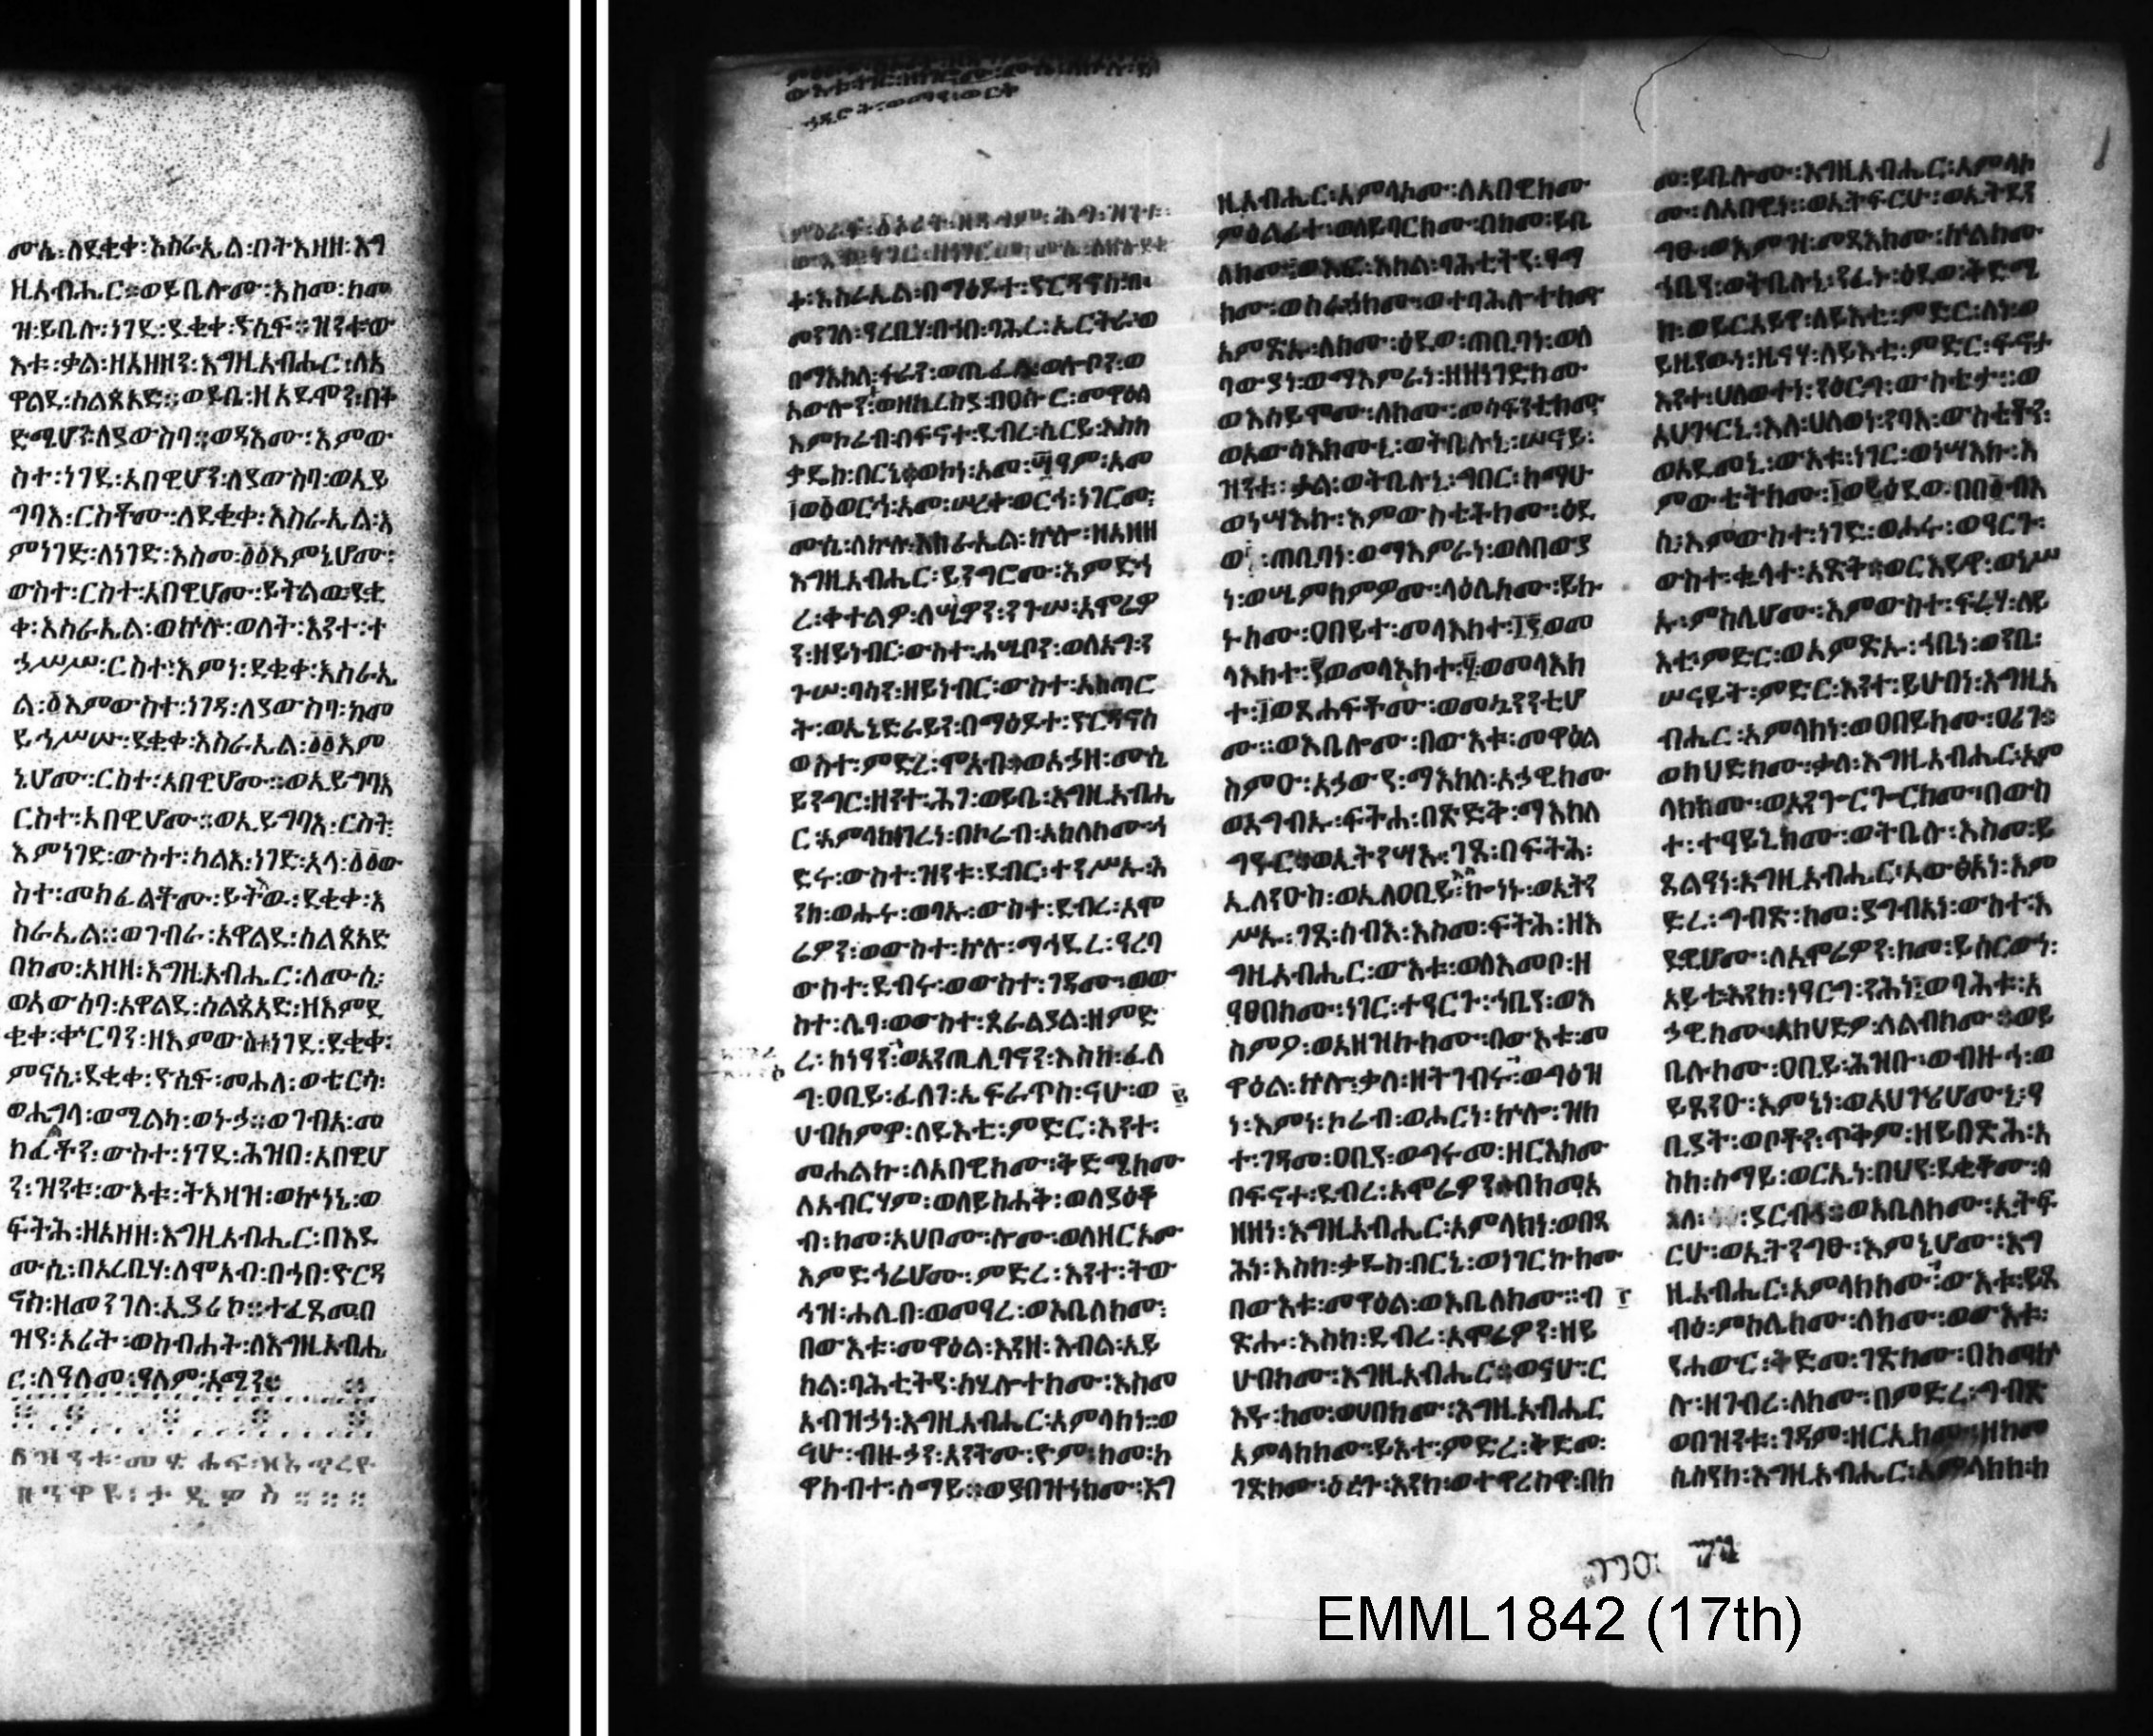 ሙሴ፡ለደቂቀ፡እስራኤል፡በትእዘዘ፡እግ
ዚአብሔር።ወይቤሎሙ፡እስመ፡ከመ
ዝ፡ይቤሉ፡ነገደ፡ደቂቀ፡ዮሴፍ።ዝንቱ፡ው
እቱ፡ቃል፡ዘአዘዘን፡እግዚአብሔር፡ለአ
ዋልደ፡ስልጰአድ።ወይቤ፡ዘአደሞን፡በቅ
ድሜሆን፡ለያውስባ።ወዳእሙ፡እምው
ስተ፡ነገደ፡አበዊሆን፡ለያውስባ፡ወኢይ
ግባእ፡ርስቶሙ፡ለደቂቀ፡እስራኤል፡እ
ምነገድ፡ለነገድ፡እስመ፡፩፩እምኔሆሙ፡
ውስተ፡ርስተ፡አበዊሆሙ፡ይትልው፡ደቂ
ቀ፡እስራኤል፡ወኵሉ፡ወለት፡እንተ፡ተ
ኃሥሥ፡ርስተ፡እምነ፡ደቂቀ፡እስራኤ
ል፡፩እምውስተ፡ነገዳ፡ለያውስባ፡ከመ
ይኅሥሡ፡ደቂቀ፡እስራኤል፡፩፩እም
ኔሆሙ፡ርስተ፡አበዊሆሙ።ወኢይግባእ
ርስተ፡አበዊሆሙ።ወኢይግባእ፡ርስት፡
እምነገድ፡ውስተ፡ካልእ፡ነገድ፡አላ፡፩፩ው
ስተ፡መክፈልቶሙ፡ይትልው፡ደቂቀ፡እ
ስራኤል።ወገብራ፡አዋልደ፡ስልጰአድ
በከመ፡አዘዘ፡እግዚአብሔር፡ለሙሴ፡
ወአውሰባ፡አዋልደ፡ስልጰአድ፡ዘእምደ
ቂቀ፡ቍርባን፡ዘእምውስተነገደ፡ደቂቀ፡
ምናሴ፡ደቂቀ፡ዮሴፍ፡መሐለ፡ወቴርሳ፡
ወሔግላ፡ወሚልካ፡ወኑኃ።ወገብአ፡መ
ክፈቶን፡ውስተ፡ነገደ፡ሕዝበ፡አበዊሆ
ን፡ዝንቱ፡ውእቱ፡ትእዛዝ፡ወኵነኔ፡ወ
ፍትሕ፡ዘአዘዘ፡እግዚአብሔር፡በእደ
ሙሴ፡በአረቢሃ፡ለሞአብ፡በኀበ፡ዮርዳ
ኖስ፡ዘመንገለ፡ኢያሪኮ።ተፈጸመ፡በ
ዝየ፡ኦሪት፡ወስብሐት፡ለእግዚአብሔ
ር፡ለዓለመ፡ዓለም፡አሜን።
ተ፡እስራኤል፡በማዕዶተ፡ዮርዳኖስ፡በ
መንገለ፡ዓረቢሃ፡በኀበ፡ባሕረ፡ኤርትራ፡ወ
በማእከለ፡ፋራን፡ወጢፌል፡ወሎቦን፡ወ
እምኮሬብ፡በፍኖተ፡ደብረ፡ሴርይ፡እስከ
ቃዴስ፡በርኔ፡ወኮነ፡አመ፡፵ዓም፡አመ
፲ወ፩ወርኅ፡አመ፡ሠረቀ፡ወርኅ፡ነገርሙ፡
ሙሴ፡ለኵሉ፡እስራኤል፡ኵሎ፡ዘአዘዘ
እግዚአብሔር፡ይንግሮሙ፡እምድኅ
ረ፡ቀተልዎ፡ለሴዎን፡ንጉሠ፡አሞሬዎ
ን፡ዘይነብር፡ውስተ፡ሐሴቦን፡ወለአግ፡ን
ጉሠ፡ባሳን፡ዘይነብር፡ውስተ፡አስጣር
ት፡ወኤኔድራይን፡በማዕዶተ፡ዮርዳኖስ
ውስተ፡ምድረ፡ሞአብ፡ወአኃዘ፡ሙሴ
ይንግር፡ዘንተ፡ሕገ፡ወይቤ፡እግዚአብሔ
ር፡አምላክነ፡ነገረነ፡በኮሬብ፡አከለክሙ፡ኀ
ድሩ፡ውስተ፡ዝንቱ፡ደብር፡ተንሥኡ፡እ
ንከ፡ወሑሩ፡ወባኡ፡ውስተ፡ደብረ፡አሞ
ሬዎን፡ወውስተ፡ኵሉ፡ማኅደረ፡ዓረባ
ውስተ፡ደብሩ፡ወውስተ፡ገዳሙ፡ወው
ስተ፡ሊባ፡ወውስተ፡ጰራልያል፡ዘምድ
ረ፡ከነዓን፡ወአንጢሊባኖን፡እስከ፡ፈለ
ግ፡ዐቢይ፡ፈለገ፡ኤፍራጥስ፡ናሁ፡ወ
ሀብክምዋ፡ለይእቲ፡ምድር፡እንተ፡
መሐልኩ፡ለአበዊክሙ፡ቅድሜክሙ
ለአብርሃም፡ወለይስሐቅ፡ወለያዕቆ
ብ፡ከመ፡አሀቦሙ፡ሎሙ፡ወለዘርኦሙ
እምድኅሬሆሙ፡ምድረ፡እንተ፡ትው
ኅዝ፡ሐሊበ፡ወመዓረ፡ወእቤለክሙ፡
በውእቱ፡መዋዕል፡እንዘ፡እብል፡አይ
ክል፡ባሕቲትየ፡ስሂሎተክሙ፡እስመ
አብዝኃነ፡እግዚአብሔር፡አምላክነ።ወ
ናሁ፡ብዙኃን፡አንትሙ፡ዮም፡ከመ፡ከ
ዋክብተ፡ሰማይ።ወያበዝኅክሙ፡እግ
ዚአብሔር፡አምላኮሙ፡ለአበዊክሙ
ምዕልፊተ፡ወለይባርክሙ፡በከመ፡ይቤ
ለክሙ፡ወእፎ፡እክል፡ባሕቲትየ፡ፃማ
ክሙ፡ወስራኃክሙ፡ወተባሕሎተክሙ
አምጽኡ፡ለክሙ፡ዕደወ፡ጠቢባነ፡ወለ
ባውያነ፡ወማእምራነ፡ዘዘነገድክሙ
ወእሰይሞሙ፡ለክሙ፡መሳፍንቲክሙ
ወአውሳእክሙኒ፡ወትቤሉኒ፡ሠናይ፡
ዝንቱ፡ቃል፡ወትቤሉኒ፡ግበር፡ከማሁ
ወነሣእኩ፡እምውስቴትክሙ፡ዕደ
ወ፡ጠቢባነ፡ወማእምራነ፡ወለበውያ
ነ፡ወሤምክምዎሙ፡ላዕሌክሙ፡ይኩ
ኑክሙ፡ዐበይተ፡መላእክተ፡፲፻ወመ
ላእክተ፡፻ወመላእክተ፡፶ወመላእክ
ተ፡፲ወጸሐፍቶሙ፡ወመኳንንቲሆ
ሙ።ወእቤሎሙ፡በውእቱ፡መዋዕል
ስምዑ፡አኃውየ፡ማእከለ፡አኃዊክሙ
ወአግብኡ፡ፍትሐ፡በጽድቅ፡ማእከለ
ግዩር፡ወኢትንሣእ፡ገጸ፡በፍትሕ፡
ኢለንዑስ፡ወኢለዐቢይ፡ኰነኑ፡ወኢትን
ሥኡ፡ገጸ፡ሰብእ፡እስመ፡ፍትሕ፡ዘእ
ግዚአብሔር፡ውእቱ፡ወለእመቦ፡ዘ
ዓፀበክሙ፡ነገር፡ተዓርጉ፡ኀቤየ፡ወእ
ሰምዖ፡ወአዘዝኩክሙ፡በውእቱ፡መ
ዋዕል፡ኵሎ፡ቃለ፡ዘትገብሩ፡ወግዕዝ
ነ፡እምነ፡ኮሬብ፡ወሖርነ፡ኵሎ፡ዝከ
ተ፡ገዳመ፡ዐቢየ፡ወግሩመ፡ዘርእክሙ
በፍኖተ፡ደብረ፡አሞሬዎን፡በከመ፡አ
ዘዘነ፡እግዚአብሔር፡አምላክነ፡ወበጻ
ሕነ፡እስከ፡ቃዴስ፡በርኔ፡ወነገርኩክሙ
በውእቱ፡መዋዕል፡ወእቤለክሙ።ብ
ጽሑ፡እስከ፡ደብረ፡አሞሬዎን፡ዘይ
ሁበክሙ፡እግዚአብሔር፡ወናሁ፡ር
እዩ፡ከመ፡ወሀበክሙ፡እግዚአብሔር
አምላክክሙ፡ይእተ፡ምድረ፡ቅድመ፡
ገጽክሙ፡ዕረጉ፡እንከ፡ወተዋረስዋ፡በከ
መ፡ይቤሎሙ፡እግዚአብሔር፡አምላከ
ሙ፡ለአበዊነ።ወኢትፍርሁ፡ወኢትደን
ግፁ፡ወእምዝ፡መጻእክሙ፡ኵልክሙ
ኀቤየ፡ወትቤሉኒ፡ንፈኑ፡ዕደወ፡ቅድሜ
ነ፡ወይርአይዋ፡ለይእቲ፡ምድር፡ለነ፡ወ
ይዜንውነ፡ዜናሃ፡ለይእቲ፡ምድር፡ፍኖታ
እንተ፡ሀለወተነ፡ንዕርግ፡ውስቴታ።ወ
አህጉርኒ፡እለ፡ሀለወነ፡ንባእ፡ውስቴቶን፡
ወአደመኒ፡ውእቱ፡ነገር፡ወነሣእኩ፡እ
ምውቴትክሙ፡፲ወ፪ዕደወ፡በበ፩ብእ
ሲ፡እምውስተ፡ነገድ፡ወሖሩ፡ወዓርጉ፡
ውስተ፡ቈላተ፡አጽቅ፡ወርእይዋ፡ወነሥ
ኡ፡ምስሌሆሙ፡እምውስተ፡ፍሬሃ፡ለይ
እቲ፡ምድር፡ወአምጽኡ፡ኀቤነ፡ወንቤ፡
ሠናይት፡ምድር፡እንተ፡ይሁበነ፡እግዚአ
ብሔር፡አምላክነ፡ወዐበይክሙ፡ዐሪገ፡
ወክህድክሙ፡ቃለ፡እግዚአብሔር፡አም
ላክክሙ፡ወአንጐርጐርክሙ፡በውስ
ተ፡ተዓይኒክሙ፡ወትቤሉ፡እስመ፡ይ
ጸልዓነ፡እግዚአብሔር፡አውፅአነ፡እም
ድረ፡ግብጽ፡ከመ፡ያግብአነ፡ውስተ፡እ
ደዊሆሙ፡ለአሞሬዎን፡ከመ፡ይሰርውነ፡
አይቴ፡እንከ፡ነዓርግ፡ንሕነ፡ወባሕቱ፡አ
ኃዊክሙ፡አክህድዎ፡ለልብክሙ፡ወይ
ቤሉክሙ፡ዐቢይ፡ሕዝቡ፡ወብዙኅ፡ወ
ይጸንዑ፡እምኔነ፡ወአህጉሪሆሙኒ፡ዓ
ቢያት፡ወቦቶን፡ጥቅም፡ዘይበጽሕ፡እ
ስከ፡ሰማይ፡ወርኢነ፡በህየ፡ደቂቆሙ፡ለ
ያርብሕ።ወእቤለክሙ፡ኢትፍ
ርሁ፡ወኢትንግፁ፡እምኔሆሙ፡እግ
ዚአብሔር፡አምላክክሙ፡ውእቱ፡ይጸ
ብዕ፡ምስሌክሙ፡ለክሙ፡ወውእቱ፡
የሐውር፡ቅድመ፡ገጽክሙ፡በከመ፡ኵ
ሉ፡ዘገብረ፡ለክሙ፡በምድረ፡ግብጽ
ወበዝንቱ፡ገዳም፡ዘርኢክሙ፡ዘከመ
ሴሰየከ፡እግዚአብሔር፡አምላክከ፡ከ
EMML1842 (17th)